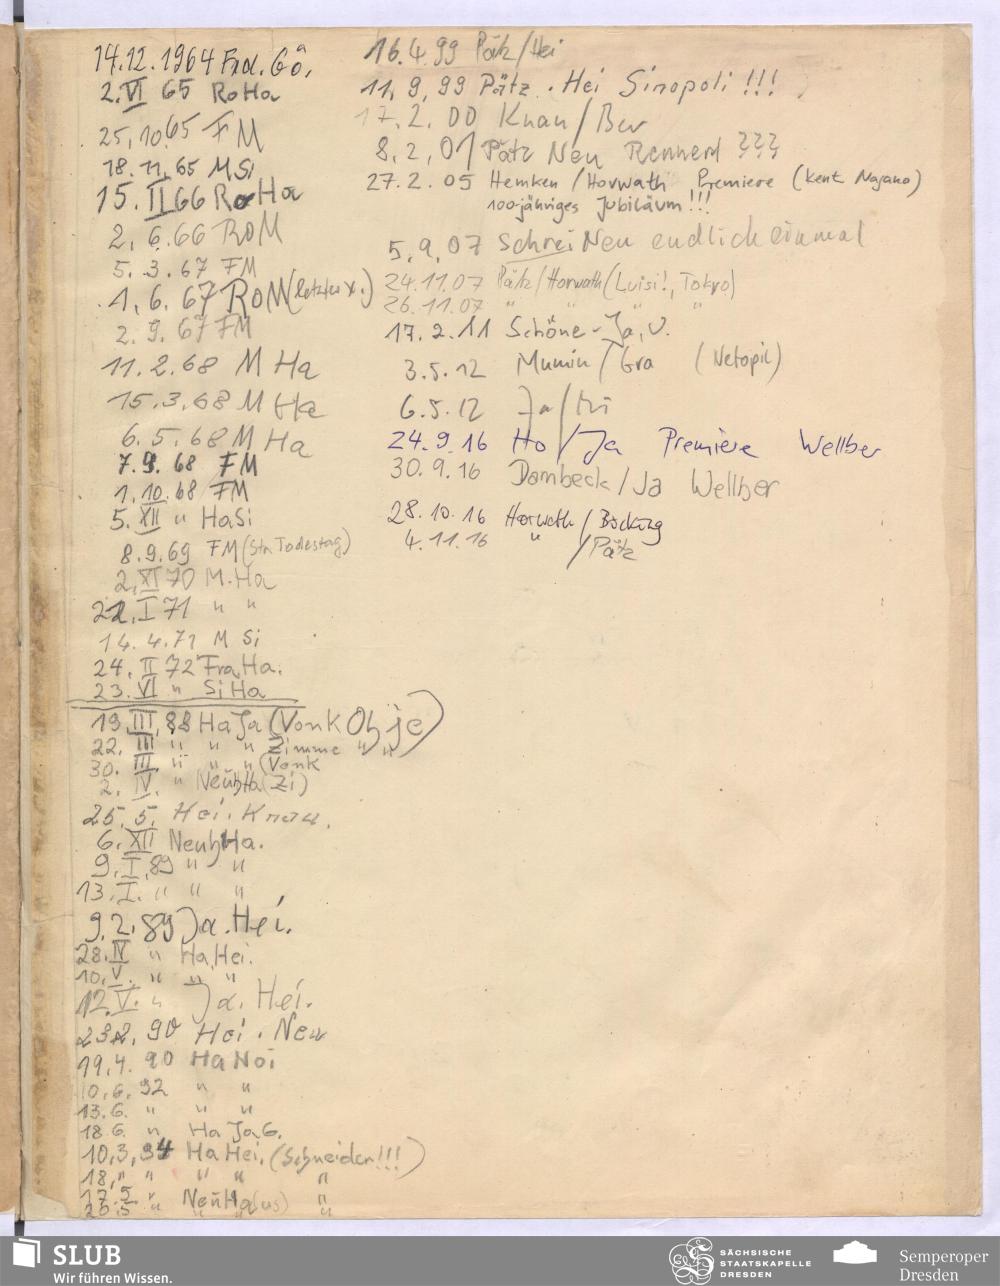 14.12.1964 Fra. Gö.
2. VI 65 RoHa
25,10.65 FM
18.11.65 MSi
15. II 66 RoHa
2, 6.66 RoM
5. 3. 67 FM
1, 6. 67 RoM (letztes x.)
2. 9. 67 FM
11. 2. 68 M Ha
15. 3. 68 M Ha
6. 5. 68 M Ha
7. 9. 68 FM
1, 10. 68 FM
5. XII " HaSi
8. 9. 69 FM (Str. Todestag)
2, XI 70 M. Ha
22, I 71 " "
14. 4. 71 M Si
24. II 72 Fra, Ha.
23. VI " Si Ha
19, III, 88 Ha Ja (Vonk Oh je)
22. III " " " Zimme " "
30. III " " " (Vonk
2. IV. " Neuh Ha (Zi)
25, 5, Hei. Knau.
6. XII Neuh Ha.
9. I, 89 " "
13. I. " " "
9. 2. 89 Ja. Hei.
28. IV " Ha, Hei.
10, V. " " "
12. V. " Ja. Hei.
23.2. 90 Hei. Neu
19, 4. 90 Ha Noi
10, 6, 92 " "
13. 6. " " "
18. 6 " Ha Ja G.
10, 3, 94 Ha Hei. (Schneider!!!)
18, " " " " "
17. 5 " Neu Ha (us) "
20. 5 " " "
16. 4. 99 Pätz / Hei
11, 9, 99 Pätz. Hei Sinopoli !!!
17. 2. 00 Knau / Ber
8, 2, 01 Pätz Neu Rennert ???
27. 2. 05 Hemken / Horwath Premiere (Kent Nagano)
100jähriges Jubiläum!!!
5, 9, 07 Schrei Neu endlich einmal
24. 11. 07 Pätz / Horwath (Luisi!, Tokyo)
26. 11. 07 " " " "
17. 2. 11 Schöne - Ja, U.
3. 5. 12 Mumin / Gra (Netopil)
6. 5. 12 Ja /
24. 9. 16 Ho / Ja Premiere Wellber
30. 9. 16 Dombeck / Ja Wellber
28. 10. 16 Horwath / Böcking
4. 11. 16 " / Pätz
SLUB
Wir führen Wissen.
SÄCHSISCHE
STAATSKAPELLE
DRESDEN
Semperoper
Dresden